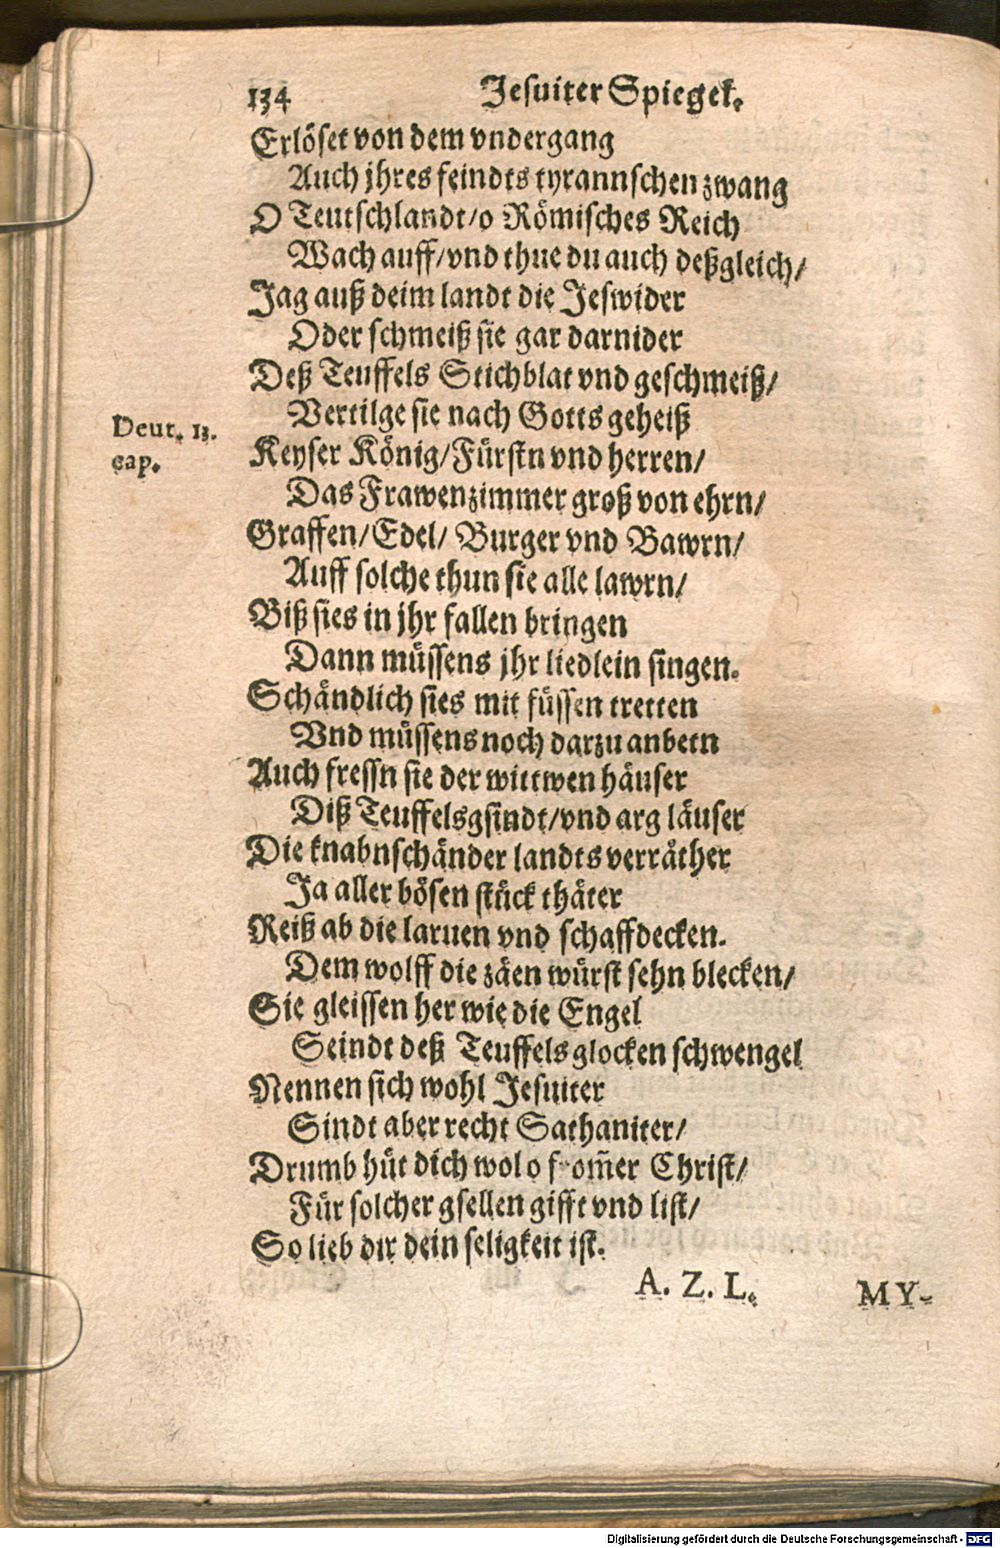 134 Jesuiter Spiegel.
Erlöset von dem vndergang
Auch jhres feindts tyrannschen zwang
O Teutschlandt/o Römisches Reich
Wach auff/vnd thue du auch deßgleich/
Jag auß deim landt die Jeswider
Oder schmeiß sie gar darnider
Deß Teuffels Stichblat vnd geschmeiß/
Vertilge sie nach Gotts geheiß
Deut. 13.
cap.
Keyser König/Fürstn vnd herren/
Das Frawenzimmer groß von ehrn/
Graffen/Edel/ Burger vnd Bawrn/
Auff solche thun sie alle lawrn/
Biß sies in jhr fallen bringen
Dann müssens jhr liedlein singen.
Schändlich sies mit füssen tretten
Vnd müssens noch darzu anbetn
Auch fressn sie der wittwen häuser
Diß Teuffelsgsindt/vnd arg läuser
Die knabnschänder landts verräther
Ja aller bösen stück thäter
Reiß ab die laruen vnd schaffdecken.
Dem wolff die zäen würst sehn blecken/
Sie gleissen her wie die Engel
Seindt deß Teuffels glocken schwengel
Nennen sich wohl Jesuiter
Sindt aber recht Sathaniter/
Drumb hüt dich wol o from̃er Christ/
Für solcher gsellen gifft vnd list/
So lieb dir dein seligkeit ist.
A. Z. L.
MY-
Digitalisierung gefördert durch die Deutsche Forschungsgemeinschaft - DFG